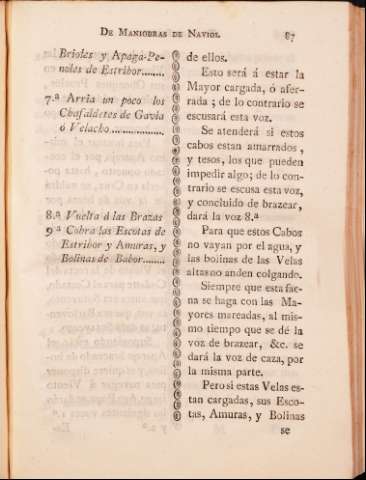 DE MANIOBRAS DE NAVIOS. 87
Brioles y Apaga-Pe-
noles de Estribor........
7.ª Arria un poco los
Chafaldetes de Gavia
ó Velacho..................
8.ª Vuelta á las Brazas
9ª Cobra las Escotas de
Estribor y Amuras, y
Bolinas de Babor.......
de ellos.
Esto será á estar la
Mayor cargada, ó afer-
rada ; de lo contrario se
escusará esta voz.
Se atenderá si estos
cabos estan amarrados ,
y tesos, los que pueden
impedir algo; de lo con-
trario se escusa esta voz,
y concluido de brazear,
dará la voz 8.ª
Para que estos Cabos
no vayan por el agua, y
las bolinas de las Velas
altas no anden colgando.
Siempre que esta fae-
na se haga con las Ma-
yores mareadas, al mis-
mo tiempo que se dé la
voz de brazear, &c. se
dará la voz de caza, por
la misma parte.
Pero si estas Velas es-
tan cargadas, sus Esco-
tas, Amuras, y Bolinas
se